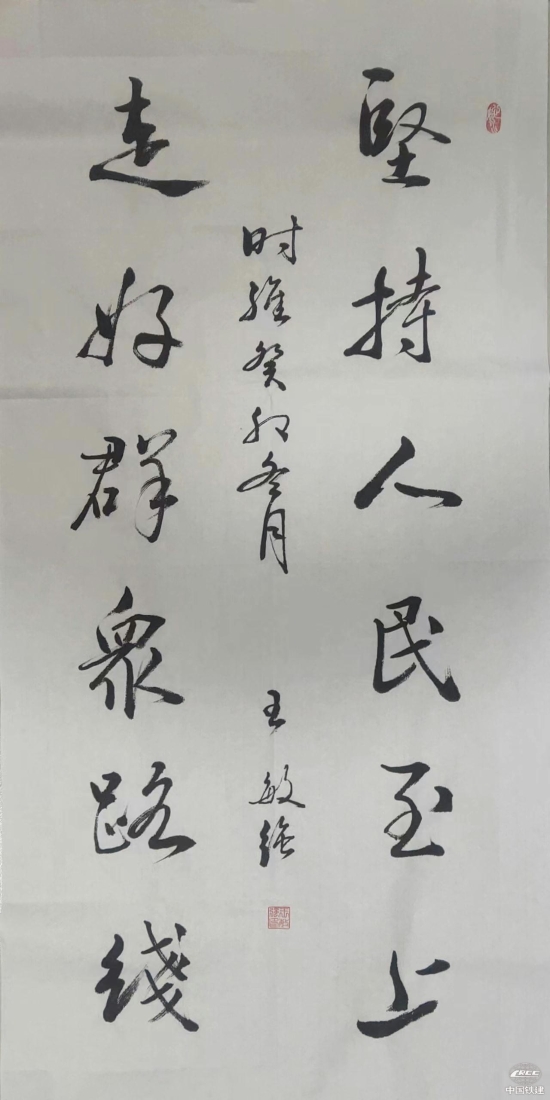 堅持人民至上
时維癸卯冬月 王敏
走好群眾路綫
CRCC
中国铁建